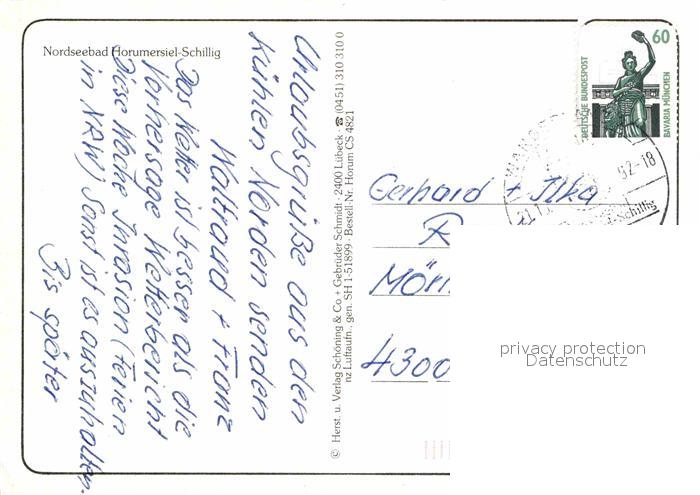 Nordseebad Horumersiel-Schillig
Urlaubsgrüße aus den
kühlen Norden senden
Waltraud + Franz
Das Wetter ist besser als die
Vorhersage Wetterbericht
Diese Woche Invasion (Ferien
in NRW) Sonst ist es auszuhalten.
Bis später
© Herst. u. Verlag Schöning & Co + Gebrüder Schmidt · 2400 Lübeck · ☎ (0451) 310 310 0
nz Luftaufn., gen. SH 1-51899 · Bestell-Nr. Horum CS 4821
60
DEUTSCHE BUNDESPOST
BAVARIA MÜNCHEN
92-18
Schillig
Gerhard + Ilka
R
Mör
4300
privacy protection
Datenschutz